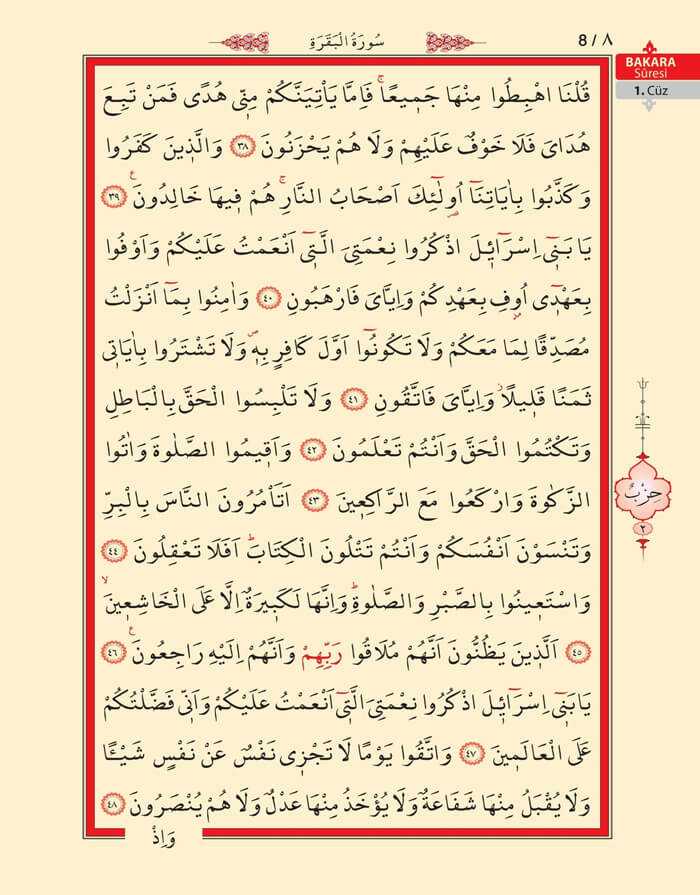 سُورَةُ الْبَقَرَةِ
8 / ٨
BAKARA
Sûresi
1. Cüz
قُلْنَا اهْبِطُوا مِنْهَا جَمٖيعًاۚ فَاِمَّا يَأْتِيَنَّكُمْ مِنّٖى هُدًى فَمَنْ تَبِعَ
هُدَاىَ فَلَا خَوْفٌ عَلَيْهِمْ وَلَا هُمْ يَحْزَنُونَ ﴿٣٨﴾ وَالَّذٖينَ كَفَرُوا
وَكَذَّبُوا بِاٰيَاتِنَٓا اُولٰٓئِكَ اَصْحَابُ النَّارِۚ هُمْ فٖيهَا خَالِدُونَࣖ ﴿٣٩﴾
يَا بَنٖٓى اِسْرَٓائٖلَ اذْكُرُوا نِعْمَتِىَ الَّتٖٓى اَنْعَمْتُ عَلَيْكُمْ وَاَوْفُوا
بِعَهْدٖٓى اُوفِ بِعَهْدِكُمْ وَاِيَّاىَ فَارْهَبُونِ ﴿٤٠﴾ وَاٰمِنُوا بِمَٓا اَنْزَلْتُ
مُصَدِّقًا لِمَا مَعَكُمْ وَلَا تَكُونُٓوا اَوَّلَ كَافِرٍ بِهٖࣕ وَلَا تَشْتَرُوا بِاٰيَاتٖى
ثَمَنًا قَلٖيلًاؗ وَاِيَّاىَ فَاتَّقُونِ ﴿٤١﴾ وَلَا تَلْبِسُوا الْحَقَّ بِالْبَاطِلِ
وَتَكْتُمُوا الْحَقَّ وَاَنْتُمْ تَعْلَمُونَ ﴿٤٢﴾ وَاَقٖيمُوا الصَّلٰوةَ وَاٰتُوا
الزَّكٰوةَ وَارْكَعُوا مَعَ الرَّاكِعٖينَ ﴿٤٣﴾ اَتَأْمُرُونَ النَّاسَ بِالْبِرِّ
وَتَنْسَوْنَ اَنْفُسَكُمْ وَاَنْتُمْ تَتْلُونَ الْكِتَابَؕ اَفَلَا تَعْقِلُونَ ﴿٤٤﴾
وَاسْتَعٖينُوا بِالصَّبْرِ وَالصَّلٰوةِؕ وَاِنَّهَا لَكَبٖيرَةٌ اِلَّا عَلَى الْخَاشِعٖينَۙ
﴿٤٥﴾ اَلَّذٖينَ يَظُنُّونَ اَنَّهُمْ مُلَاقُوا رَبِّهِمْ وَاَنَّهُمْ اِلَيْهِ رَاجِعُونَࣖ ﴿٤٦﴾
يَا بَنٖٓى اِسْرَٓائٖلَ اذْكُرُوا نِعْمَتِىَ الَّتٖٓى اَنْعَمْتُ عَلَيْكُمْ وَاَنّٖى فَضَّلْتُكُمْ
عَلَى الْعَالَمٖينَ ﴿٤٧﴾ وَاتَّقُوا يَوْمًا لَا تَجْزٖى نَفْسٌ عَنْ نَفْسٍ شَيْـًٔا
وَلَا يُقْبَلُ مِنْهَا شَفَاعَةٌ وَلَا يُؤْخَذُ مِنْهَا عَدْلٌ وَلَا هُمْ يُنْصَرُونَ ﴿٤٨﴾
وَاِذْ
حِزْبٌ
٢